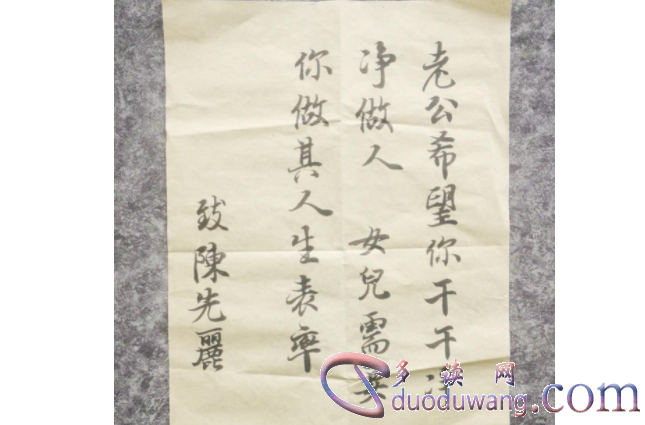 老公希望你干干净
净做人 女兒需要
你做其人生表率
致陳先麗
多读网
duoduwang.com